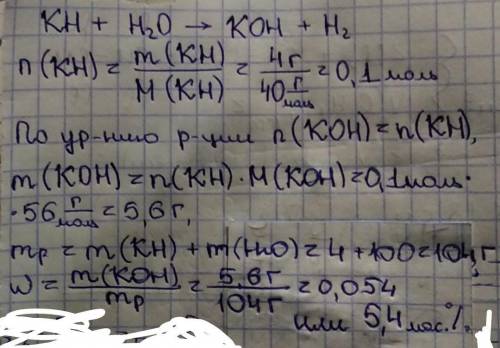 KH + H₂O → KOH + H₂
n(KH) = m(KH)/M(KH) = 4г/40 г/моль = 0,1 моль
По ур-нию р-ции n(KOH) = n(KH),
m(KOH) = n(KH) · M(KOH) = 0,1 моль ·
· 56 г/моль = 5,6 г,
mр = m(KH) + m(H₂O) = 4 + 100 = 104 г,
w = m(KOH)/mр = 5,6 г/104 г = 0,054
или 5,4 мас.%.